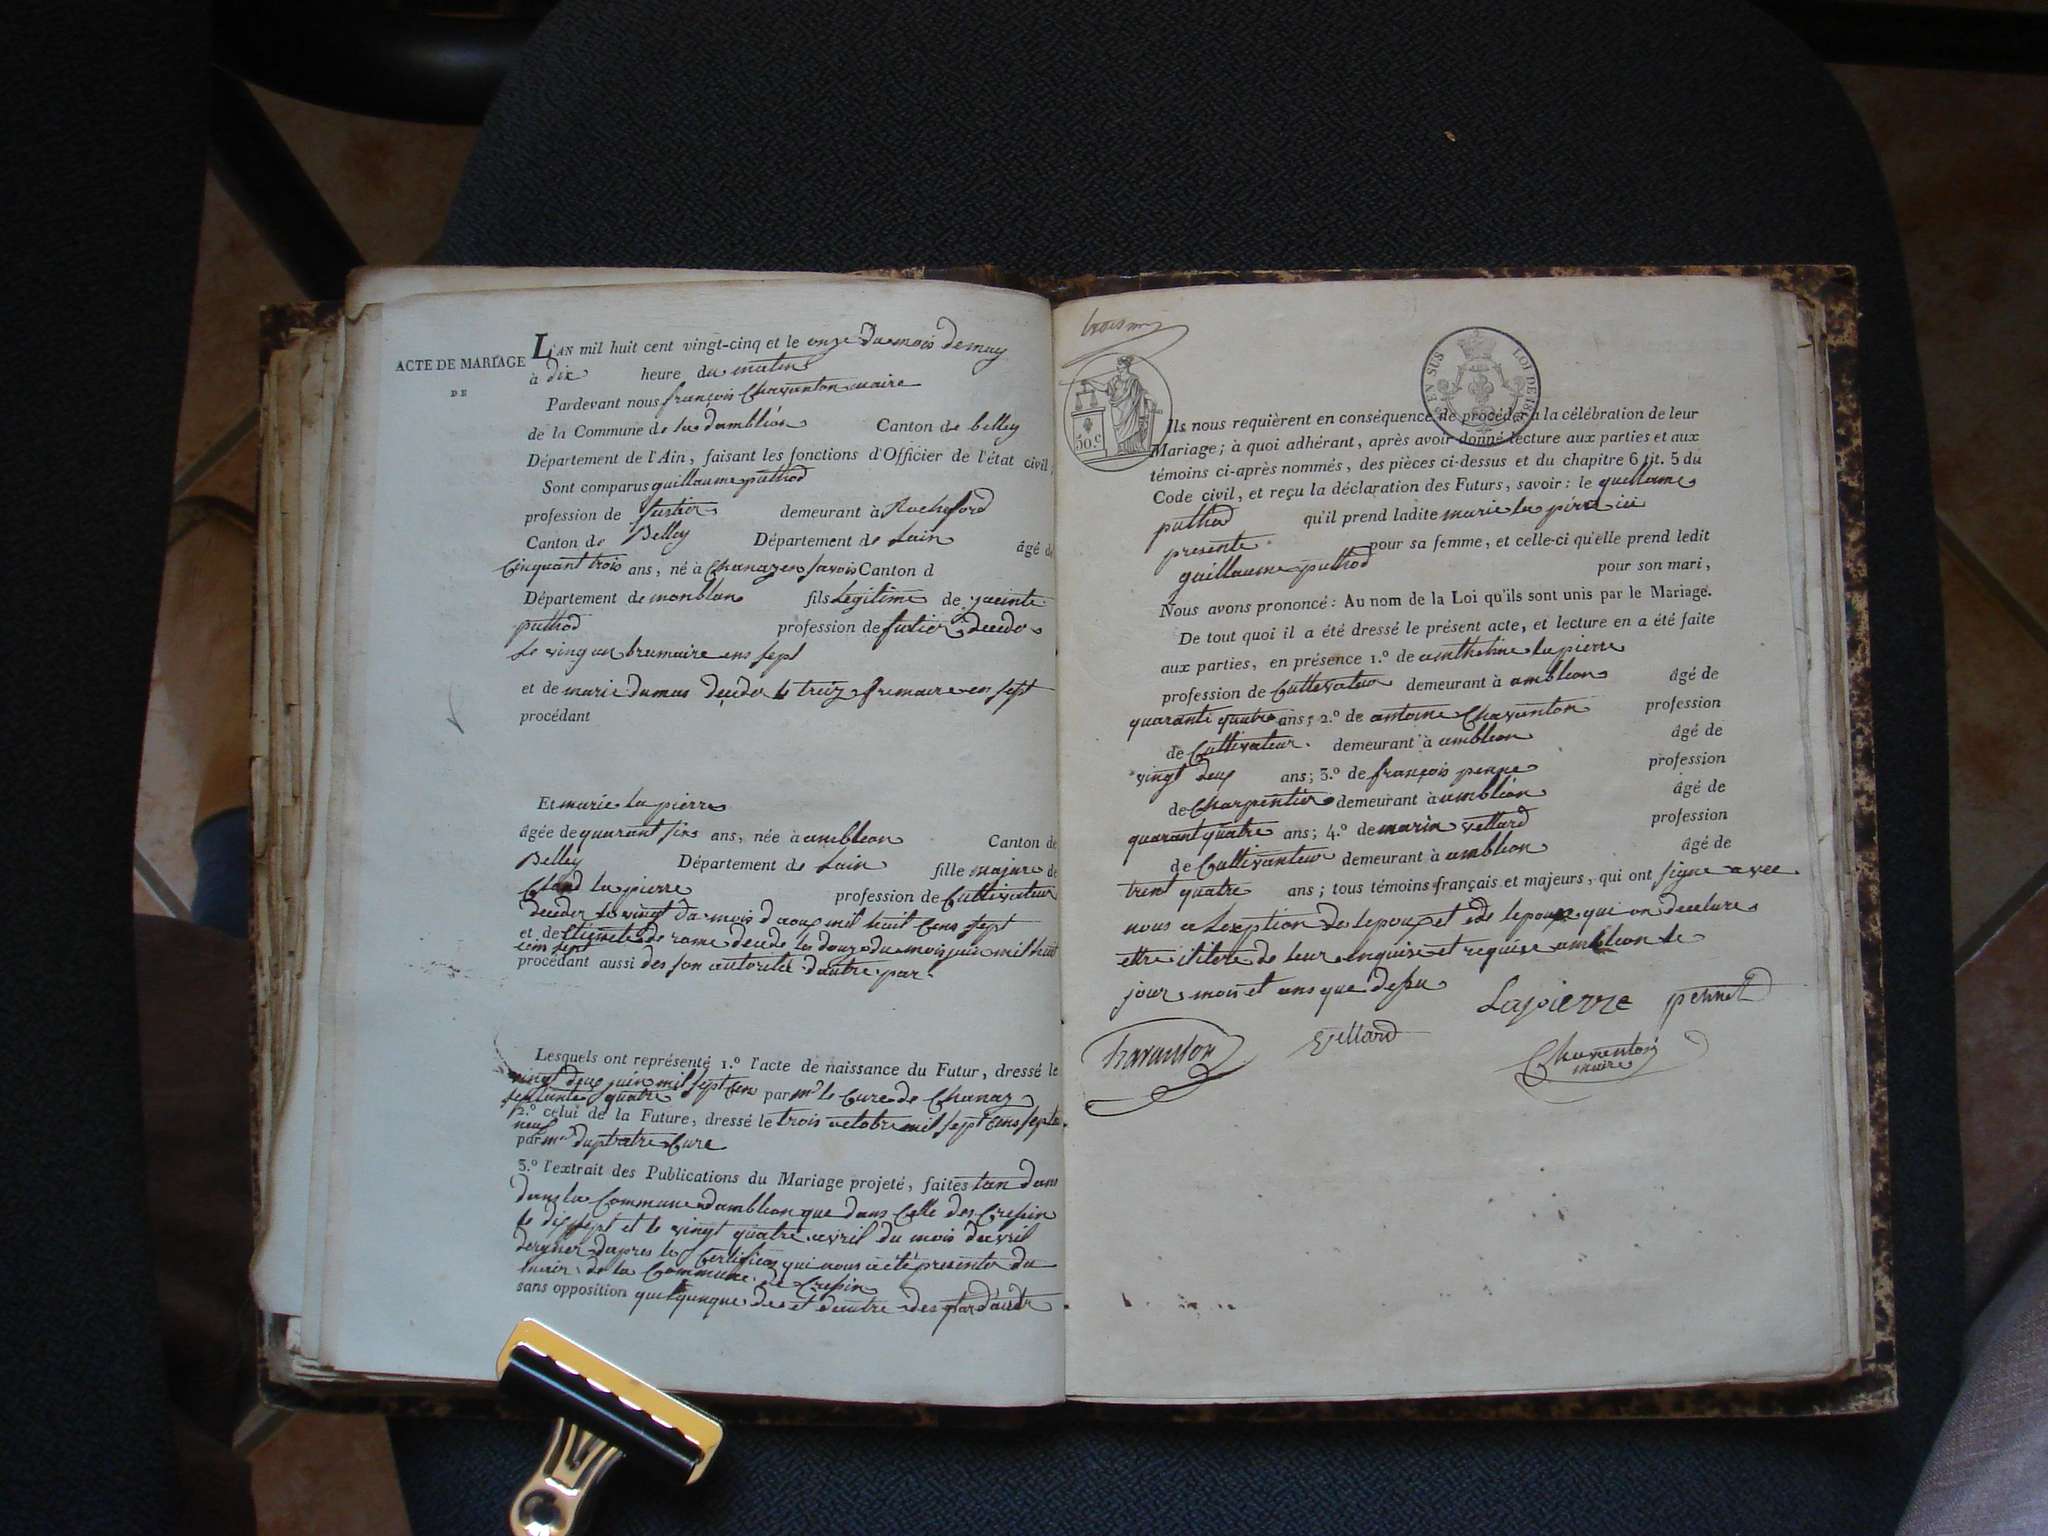 ACTE DE MARIAGE
DE
L'AN mil huit cent vingt-cinq et le onze du mois de may
à dix heure du matin
Pardevant nous françois Chavanton maire
de la Commune de la damblion Canton de belley
Département de l'Ain, faisant les fonctions d'Officier de l'état civil,
Sont comparus guillaume puthod
profession de demeurant à Rocheford
Canton de Belley Département de Lain âgé de
Cinquant trois ans, né à Chanaz en savois Canton d
Département de monblan fils Legitime de yacinte
puthod profession de deceder
Le ving un brumaire ans sept
et de marie dumas deceder le treiz frimaire en sept
procédant
Et marie la pierre
âgée de quarant sins ans, née à ambleon Canton de
Belley Département de Lain fille majure de
Claud la pierre profession de Cultivateur
deceder le vingt du mois d aous mil huit Cens sept
et de de rame decede les douze du mois juin mil huit
cens sept
procédant aussi des son autorité dautre par
Lesquels ont représenté 1.º l'acte de naissance du Futur, dressé le
vingt deux juin mil sept Cen
septante quatre par mr le Cure de Chanaz
2.º celui de la Future, dressé le trois octobre mil sept Cens septen
neuf
par mr Cure
3.º l'extrait des Publications du Mariage projeté, faites tan dans
dans la Commune dambleon que dans Celle des Crepin
le dix sept et le vingt quatre avril du mois davril
dernier dapres le Certificas qui nous a été presenter du
mair de la Commune de Crepin
sans opposition quelqunque des et dautre des par dautr
trois m
50.c
EN SUS LOI DE 18
Ils nous requièrent en conséquence de procéder à la célébration de leur
Mariage; à quoi adhérant, après avoir donné lecture aux parties et aux
témoins ci-après nommés, des pièces ci-dessus et du chapitre 6 tit. 5 du
Code civil, et reçu la déclaration des Futurs, savoir: le guillame
puthod qu'il prend ladite marie la pirre ici
presente pour sa femme, et celle-ci qu'elle prend ledit
guillaume puthod pour son mari,
Nous avons prononcé: Au nom de la Loi qu'ils sont unis par le Mariage.
De tout quoi il a été dressé le présent acte, et lecture en a été faite
aux parties, en présence 1.º de anthelme la pierre
profession de Cultivateur demeurant à ambleon âgé de
quarante quatre ans; 2.º de antoine Chavanton profession
de Cultivateur demeurant à ambleon âgé de
vingt deux ans; 3.º de françois penne profession
de Charpentier demeurant à amblion âgé de
quarant quatre ans; 4.º de marin vellard profession
de Cultivanteur demeurant à amblion âgé de
trent quatre ans; tous témoins français et majeurs, qui ont signe avec
nous a Lexption de lepoux et de lepouze qui on declare
ettre ititere de leur enquise et requise ambleon le
jour mois et ans que desu
Lapierre pennet
Chavanton vellard Chavanton
maire